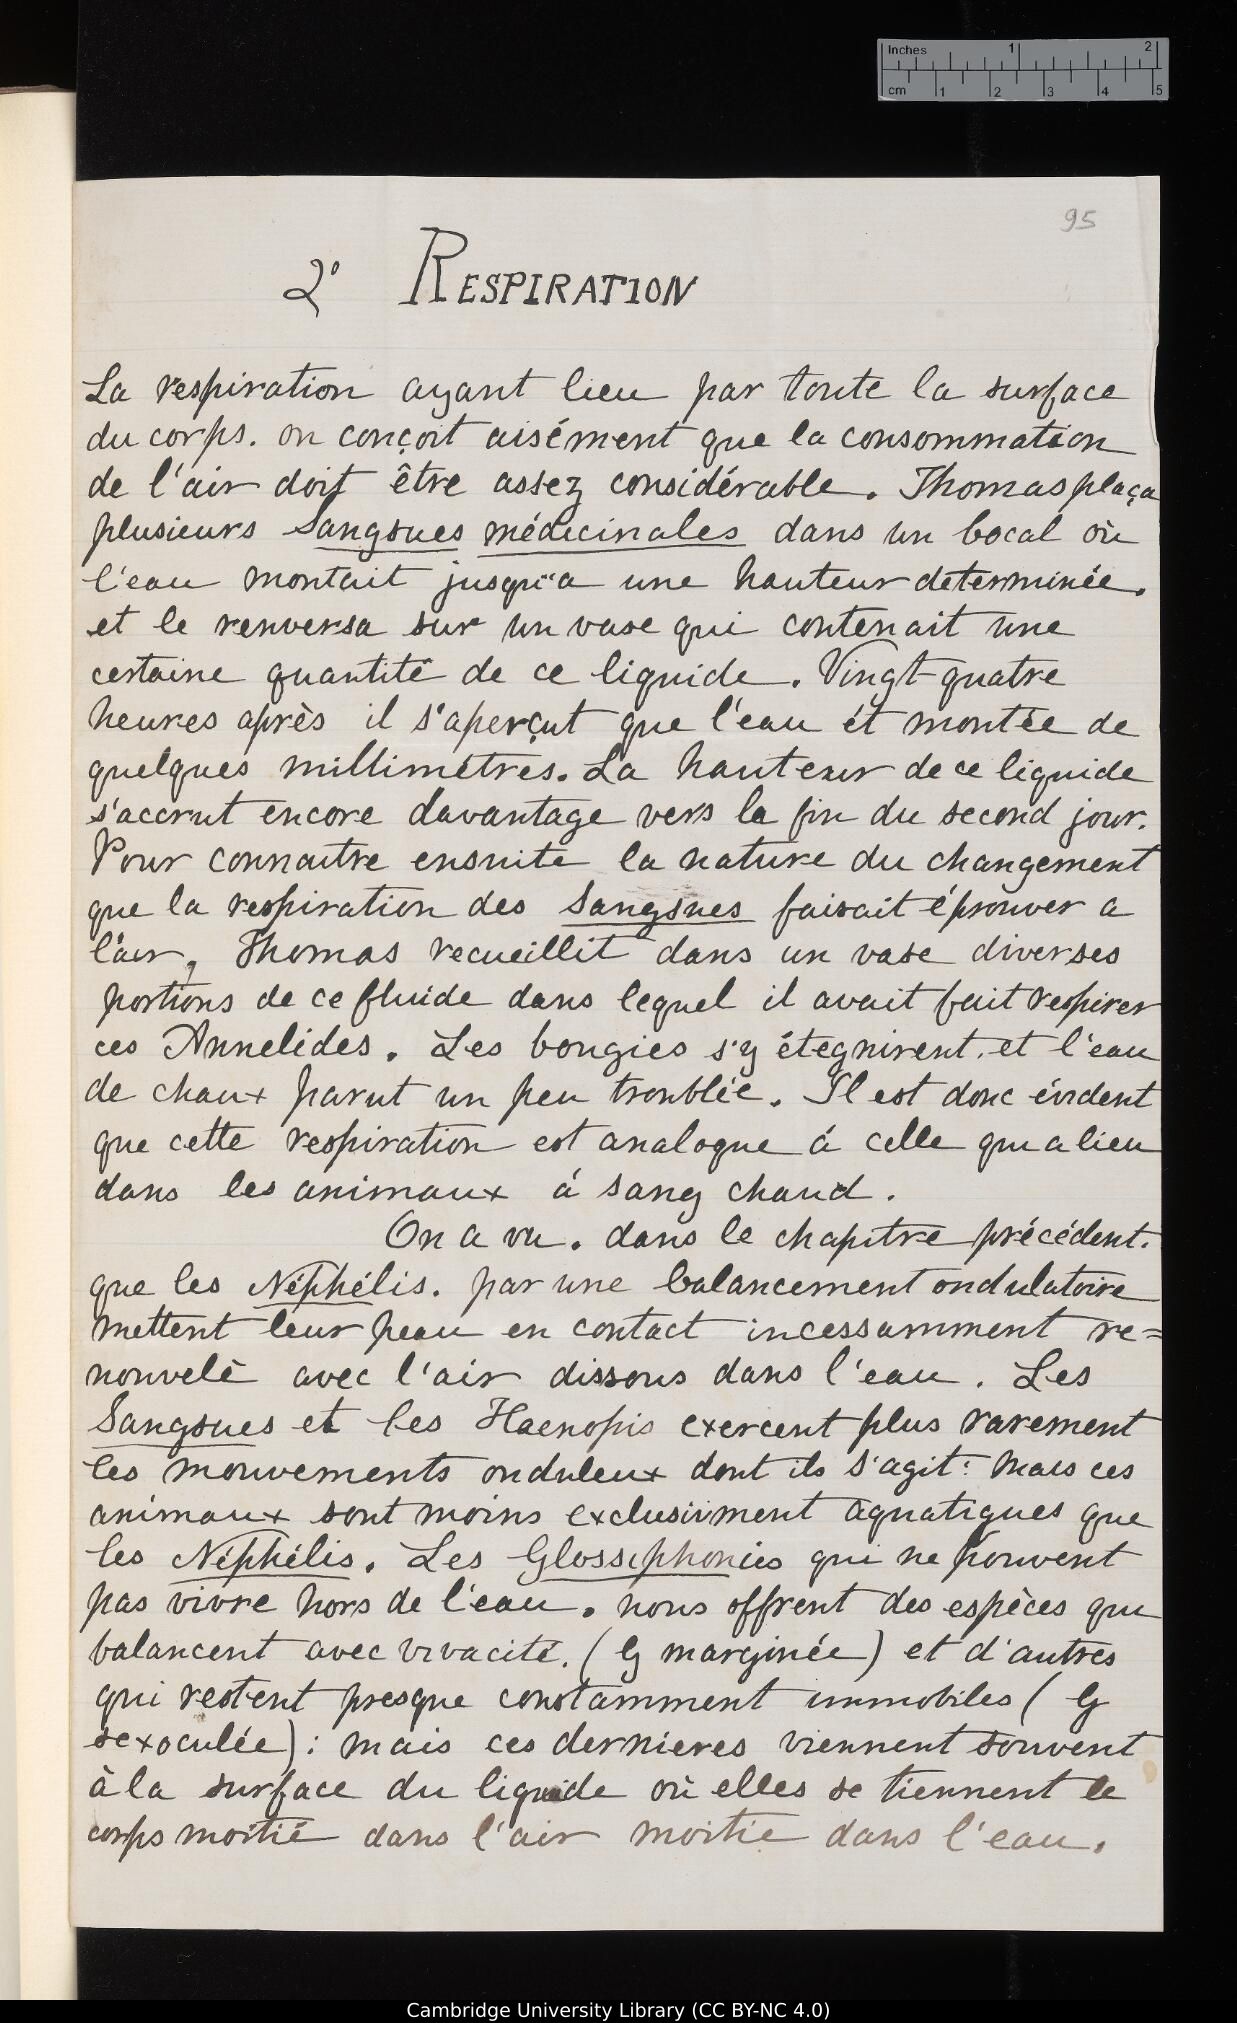 Inches 1 2
cm 1 2 3 4 5
95
2° RESPIRATION
La respiration ayant lieu par toute la surface
du corps. on conçoit aisément que la consommation
de l'air doit être assez considérable. Thomas plaça
plusieurs Sangsues médicinales dans un bocal où
l'eau montait jusqu'a une hauteur determinée.
et le renversa sur un vase qui contenait une
certaine quantité de ce liquide. Vingt quatre
heures après il s'aperçut que l'eau ét montée de
quelques millimètres. La hauteur de ce liquide
s'accrut encore davantage vers la fin du second jour.
Pour connaitre ensuite la nature du changement
que la respiration des Sangsues faisait éprouver a
l'air, Thomas recueillit dans un vase diverses
portions de ce fluide dans lequel il avait fait respirer
ces Annelides. Les bougies s'y étegnirent. et l'eau
de chaux parut un peu troublée. Il est donc évident
que cette respiration est analogue á celle qui a lieu
dans les animaux á sang chaud.
On a vu. dans le chapitre précédent.
que les Néphélis. par une balancement ondulatoire
mettent leur peau en contact incessamment re=
nouvelè avec l'air dissous dans l'eau. Les
Sangsues et les Haenopis exercent plus rarement
les mouvements onduleux dont ils s'agit: Mais ces
animaux sont moins exclusivment aquatiques que
les Néphélis. Les Glossiphonies qui ne peuvent
pas vivre hors de l'eau. nous offrent des espèces qui
balancent avec vivacité. (G marginée) et d'autres
qui restent presque constamment immobiles (G
sexoculée): mais ces dernieres viennent souvent
à la surface du liquide où elles se tiennent le
corps moitié dans l'air moitie dans l'eau.
Cambridge University Library (CC BY-NC 4.0)